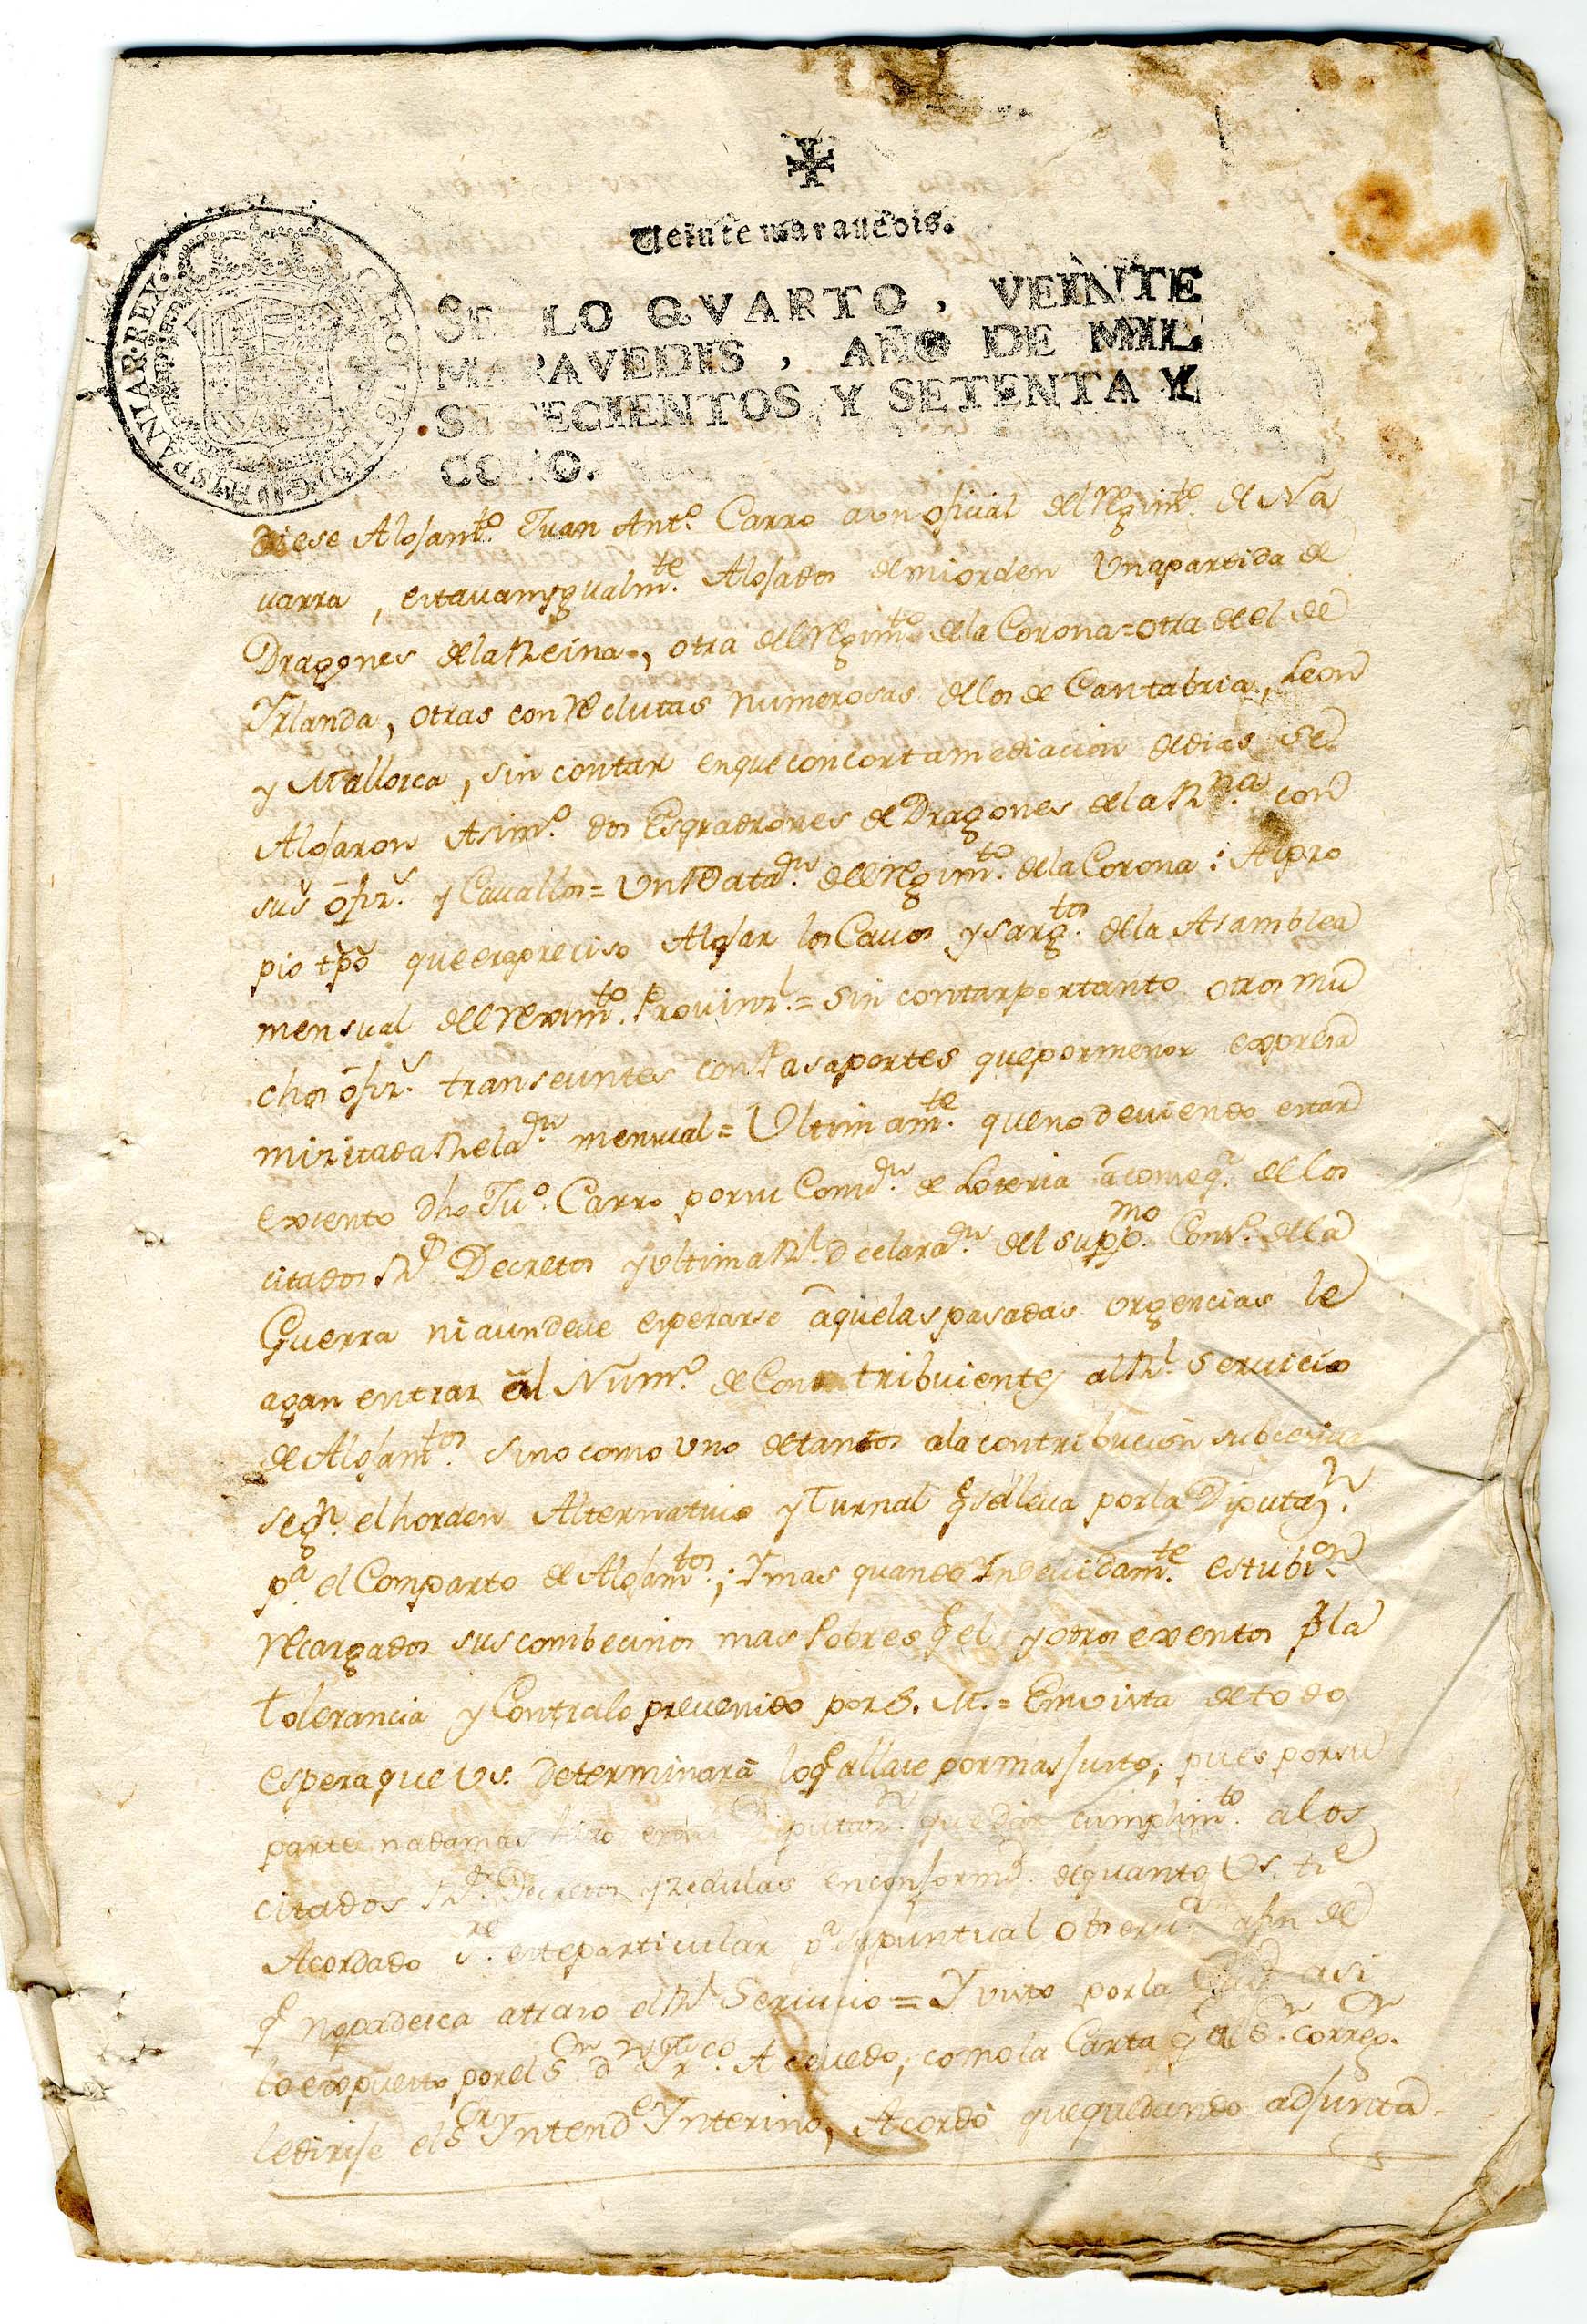 Veinte maravedis.
SELLO QVARTO, VEINTE
MARAVEDIS, AÑO DE MIL
SETECIENTOS Y SETENTA Y
OCHO.
HISPANIAR. REX.
diese Alojamto. Juan Anto. Carro aun oficial del Regimto. de Na
uarra, estauan ygualmte. Alojados de mi orden Una partida de
Dragones de la Reina, otra del Regimto. de la Corona = otra de el de
Yrlanda, otras con Reclutas numerosas de los de Cantabria, Leon
y Mallorca, sin contar en que con corta mediacion de dias se
Alojaron Asimo. dos Esquadrones de Dragones de la Rna. con
sus ofizs. y Cauallos = Un Datan. del Regimto. de la Corona: Al pro
pio tpo que era preciso Alojar los Cauos y Sargtos. de la Asamblea
mensual del Rexim.to Prouinzl. = Sin contar por tanto otros mu
chos ofizs. transeuntes con Pasaportes que por menor expresa
mi zitada Relan. mensual = Ultimamte. que no deuiendo estar
exsento dho Juo. Carro por su Comn. de Loteria a conseqa. de los
citados Rs. Decretos y ultima Rl. declaran. del suppmo. Conso. de la
Guerra ni aun deue esperarse aquelas pasadas urgencias le
agan entrar al Numo. de Contribuientes al Rl. Seruicio
de Alojamtos. sino como uno de tantos a la contribucion subcesiua
segn. el horden Alternatiuo y Turnal q se lleua por la Diputazn.
pa. el Comparto de Alojamtos.; Y mas quando Yndeuidamte. estubieron
Recargados sus combecinos mas Pobres q el y otros exentos p la
tolerancia y Contra lo preuenido por S. M. = En vista de todo
espera que Vs. determinará lo q allare por mas justo; pues por su
parte nada mas Diputazn. que dar cumplimto. a los
citados Rs. Decretos y zedulas en conformd. de quanto Vs. tie
Acordado sre. este particular pa. su puntual obserua. a fin de
q no padezca atraso el Rl. Seruicio = Y visto por la Ciud. asi
lo expuesto por el Sor. dn. Franco. Acevedo, como la Carta q al Sor. Correor.
le dirije el Sor. Yntende. Ynterino, Acordó que quedando adjunta